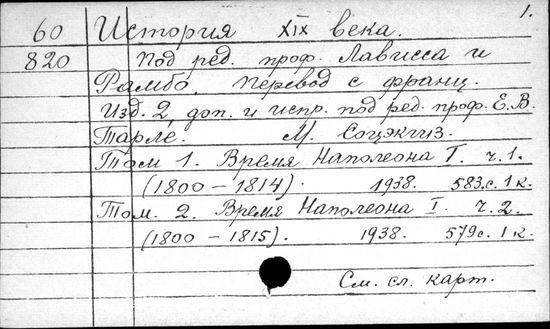 1.
60 История XIX века.
820 Под ред. проф. Лависса и
Рамбо. Перевод с франц.
Изд. 2, доп. и испр. под ред. проф. Е. В.
Тарле. М. Соцэкгиз.
Том 1. Время Наполеона I. ч. 1.
(1800 – 1814). 1938. 583 с. 1 к.
Том. 2. Время Наполеона I. ч. 2.
(1800 – 1815). 1938. 579 с. 1 к.
См. сл. карт.